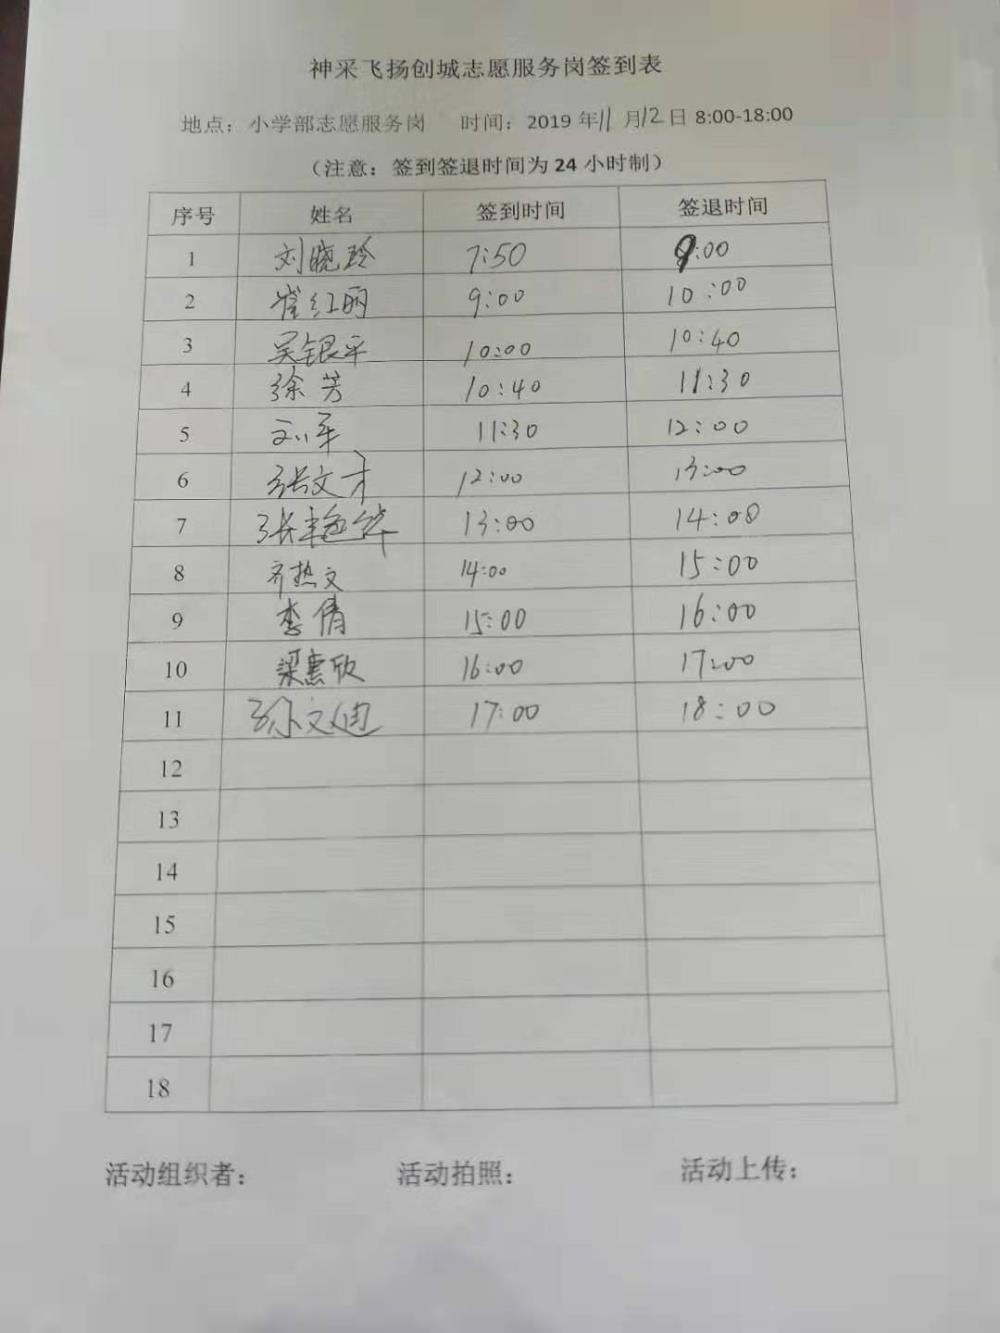 神采飞扬创城志愿服务岗签到表
地点：小学部志愿服务岗 时间：2019 年11 月12日 8:00-18:00
（注意：签到签退时间为 24 小时制）
序号 姓名 签到时间 签退时间
1 刘晓玲 7:50 9:00
2 崔红丽 9:00 10:00
3 吴银平 10:00 10:40
4 徐芳 10:40 11:30
5 刘军 11:30 12:00
6 张文才 12:00 13:00
7 张艳华 13:00 14:00
8 齐热文 14:00 15:00
9 李倩 15:00 16:00
10 梁惠欣 16:00 17:00
11 17:00 18:00
12
13
14
15
16
17
18
活动组织者： 活动拍照： 活动上传：